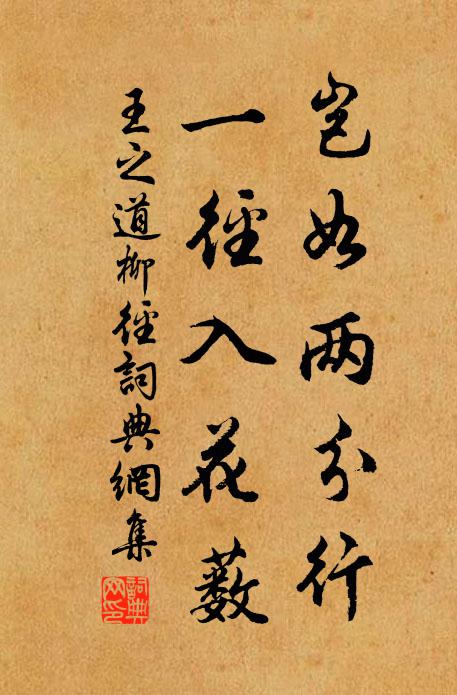 岂如两分行
一径入花薮
王之道柳径詞典網集
詞典网印